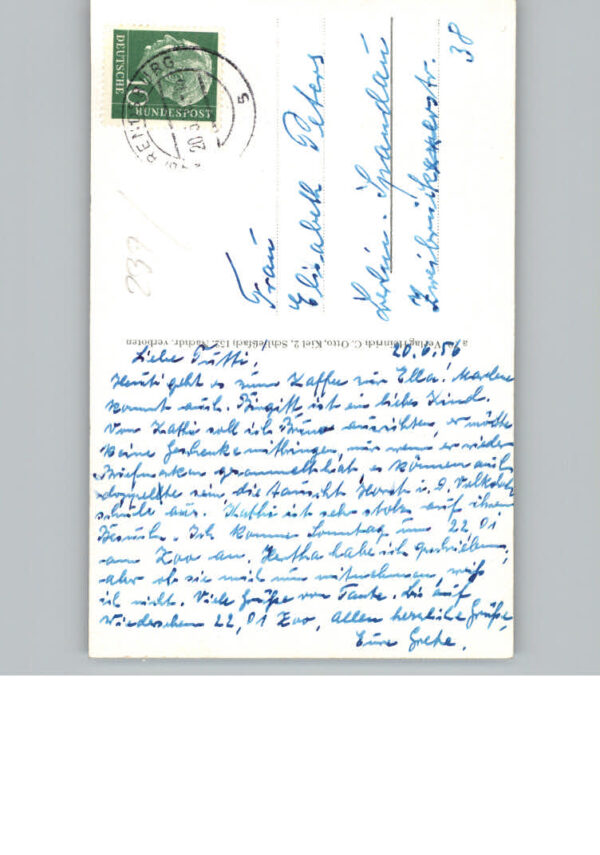 DEUTSCHE
BUNDESPOST
10
Frau
Elisabeth Peters
Berlin-Spandau
Zweibrückenerstr. 38
239
Verlag Heinrich C. Otto, Kiel 2, Schließfach 152. Nachdr. verboten
20.6.56
Liebe Tutti,
Heute geht es zum Kaffee zur Ella. Marlene
kommt auch. Birgitt ist ein liebes Kind.
Von Kathi soll ich Bruno ausrichten, er möchte
keine Geschenke mitbringen, nur wenn er wieder
Briefmarken gesammelt hat, es können auch
doppelte sein, die tauscht Horst i. d. Volksschule
aus. Kathi ist sehr stolz auf ihren
Besuch. Ich komme Sonntag um 22,01
am Zoo an. Hertha habe ich geschrieben,
aber ob sie mich nun mitnehmen, weiß
ich nicht. Viele Grüße von Tante. Bis auf
Wiedersehen 22,01 Zoo, Allen herzliche Grüße,
Eure Grete.